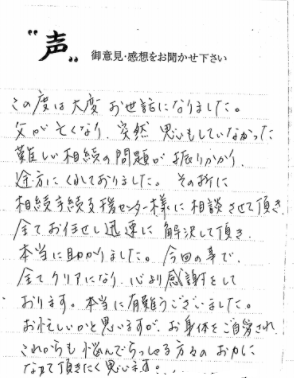 "声" 御意見・感想をお聞かせ下さい
この度は大変お世話になりました。
父が亡くなり、突然思いもしていなかった
難しい相続の問題が振りかかり、
途方にくれておりました。その折に
相続手続支援センター様に相談させて頂き
全てお任せし迅速に解決して頂き、
本当に助かりました。今回の事で、
全てクリアになり、心より感謝をして
おります。本当に有難うございました。
お忙しいかと思いますが、お身体をご自愛され、
これからも悩んでらっしゃる方々のお力に
なって頂きたく思います。